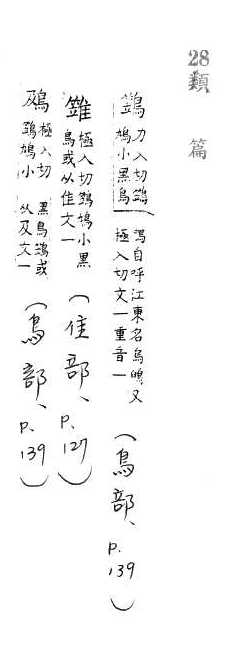 28 類篇
鷑 力入切鷑鳩小黑鳥鳴自呼江東名烏鵙又極入切文一重音一 (鳥部、p.139)
極入切鷑鳩小黑鳥或从隹文一 (隹部、p.127)
極入切鷑鳩小黑鳥鷑或从及文一 (鳥部、p.139)